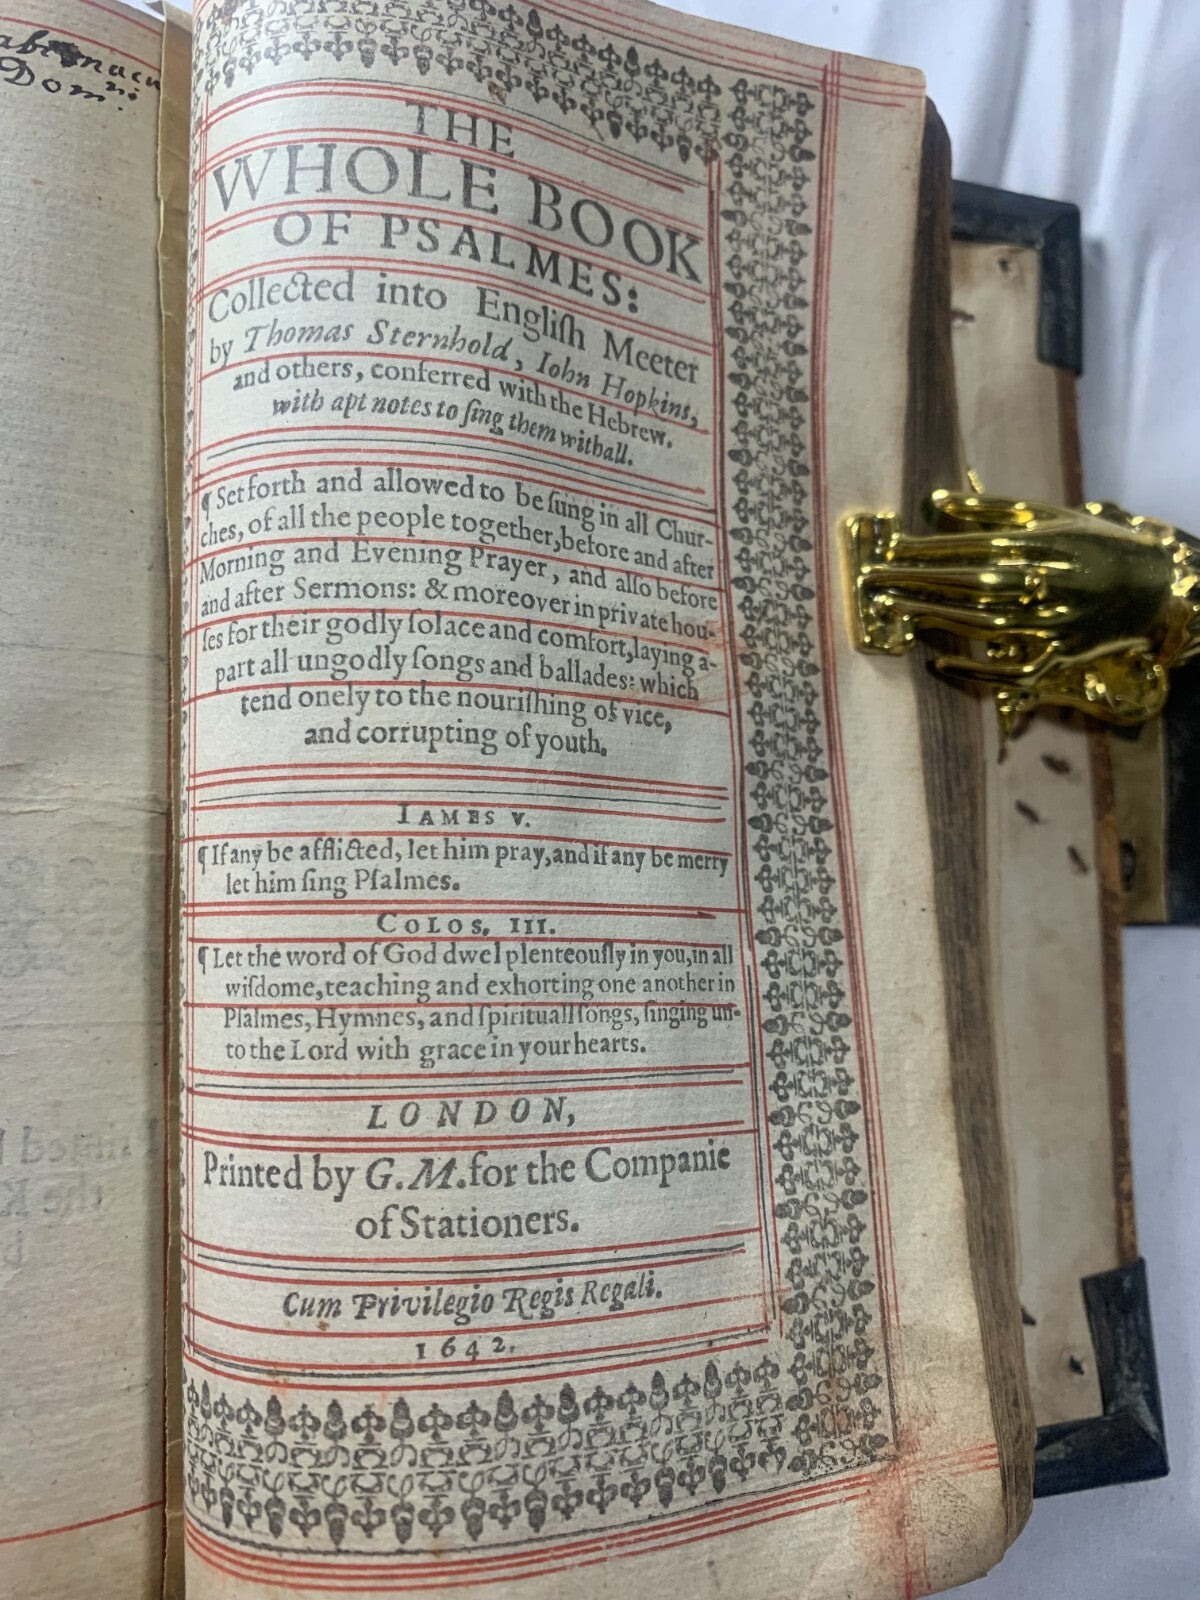 Dom.
THE
WHOLE BOOK
OF PSALMES:
Collected into Engliſh Meeter
by Thomas Sternhold, Iohn Hopkins,
and others, conferred with the Hebrew.
with apt notes to ſing them withall.
¶ Set forth and allowed to be ſung in all Chur-
ches, of all the people together, before and after
Morning and Evening Prayer, and alſo before
and after Sermons: & moreover in private hou-
ſes for their godly ſolace and comfort, laying a-
part all ungodly ſongs and ballades: which
tend onely to the nouriſhing of vice,
and corrupting of youth.
IAMES V.
¶ If any be afflicted, let him pray, and if any be merry
let him ſing Pſalmes.
COLOS. III.
¶ Let the word of God dwel plenteouſly in you, in all
wiſdome, teaching and exhorting one another in
Pſalmes, Hymnes, and ſpirituall ſongs, ſinging un-
to the Lord with grace in your hearts.
LONDON,
Printed by G. M. for the Companie
of Stationers.
Cum Privilegio Regis Regali.
1642.